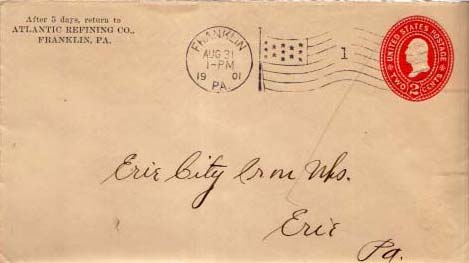 After 5 days, return to
ATLANTIC REFINING CO.,
FRANKLIN, PA.
FRANKLIN
AUG 31
1-PM
19 01
PA.
1
UNITED STATES POSTAGE
TWO 2 CENTS
Erie City Iron Wks.
Erie
Pa.